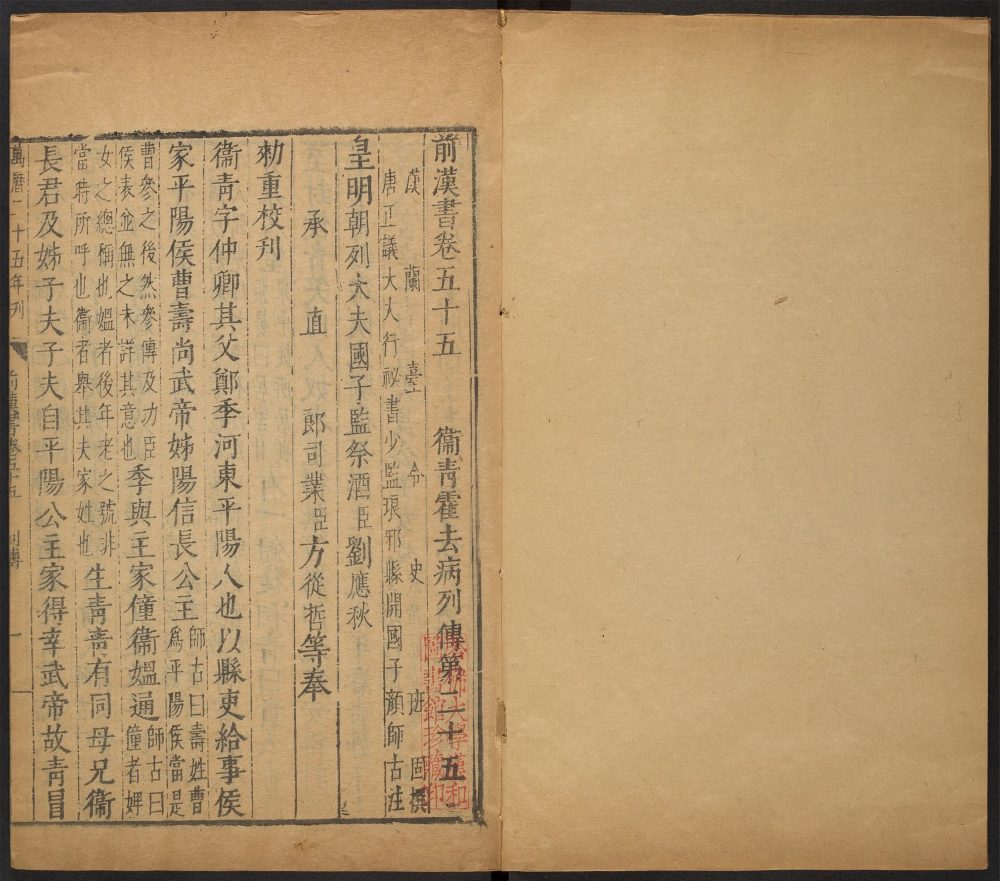 前漢書卷五十五　衞青霍去病列傳第二十五
漢蘭臺令史班固撰
唐正議大夫行祕書少監琅邪縣開國子顏師古注
皇明朝列大夫國子監祭酒臣劉應秋
承直郎司業臣方從哲等奉
勑重校刋
衞青字仲卿其父鄭季河東平陽人也以縣吏給事侯
家平陽侯曹壽尚武帝姊陽信長公主師古曰壽姓曹爲平陽侯當是
曹參之後然參傳及功臣侯表並無之未詳其意也季與主家僮衞媼通師古曰僮者婢
女之總稱也媼者後年老之號非當時所呼也衞者舉其夫家姓也生青青有同母兄衞
長君及姊子夫子夫自平陽公主家得幸武帝故青冒
萬曆二十五年刋　前漢書卷五十五　列傳　一
哈佛大學漢和圖書館珍藏印